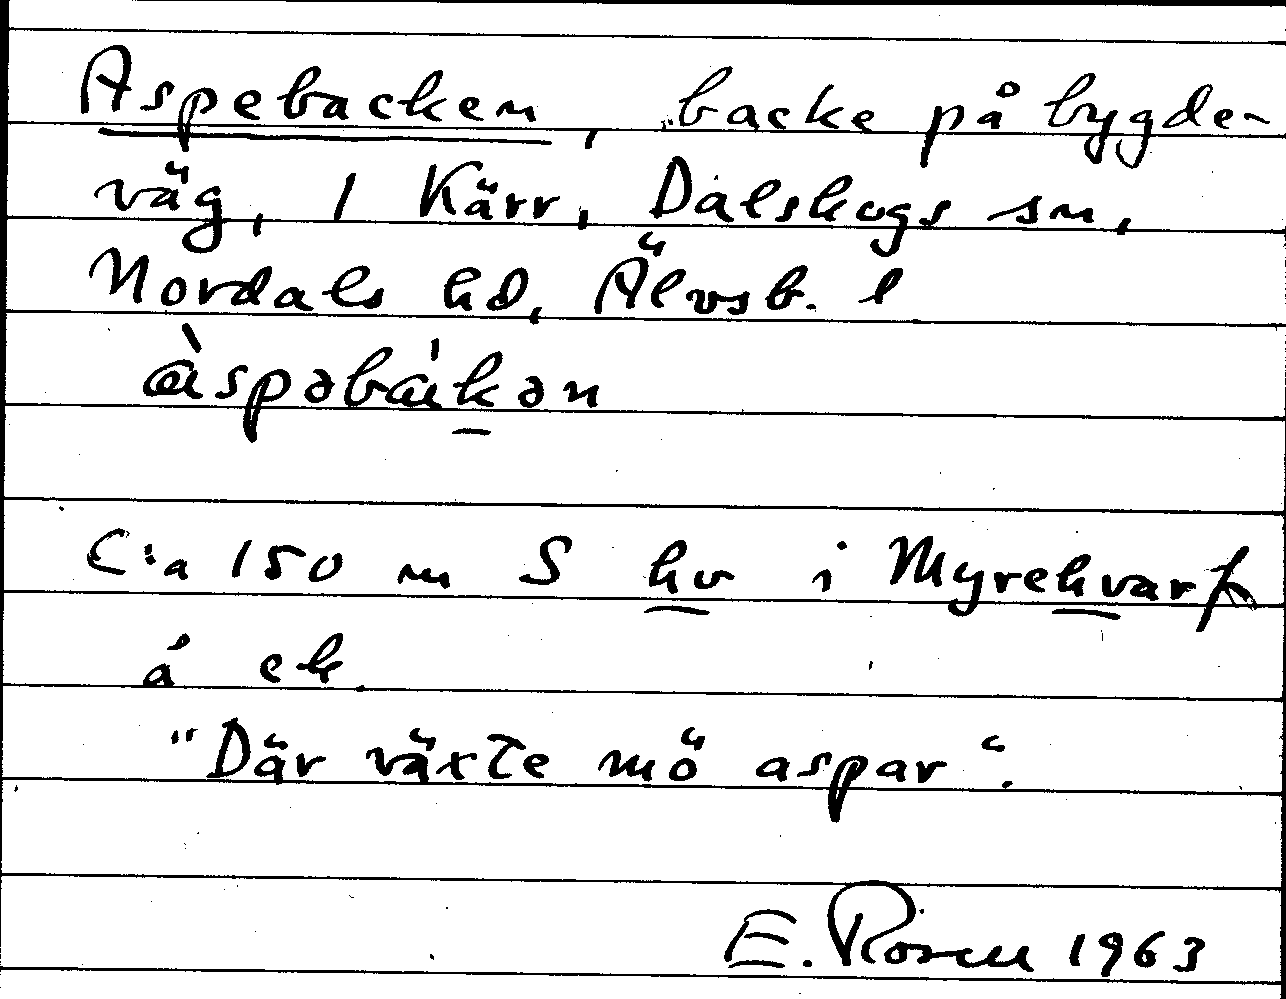 Aspebacken, backe på bygde-
väg, 1 Kärr, Dalskogs sn,
Nordals hd, Älvsb. l
àspəbákən
C:a 150 m S hv i Myrehvarf
å ek.
"Där växte mö aspar".
E. Rosen 1963